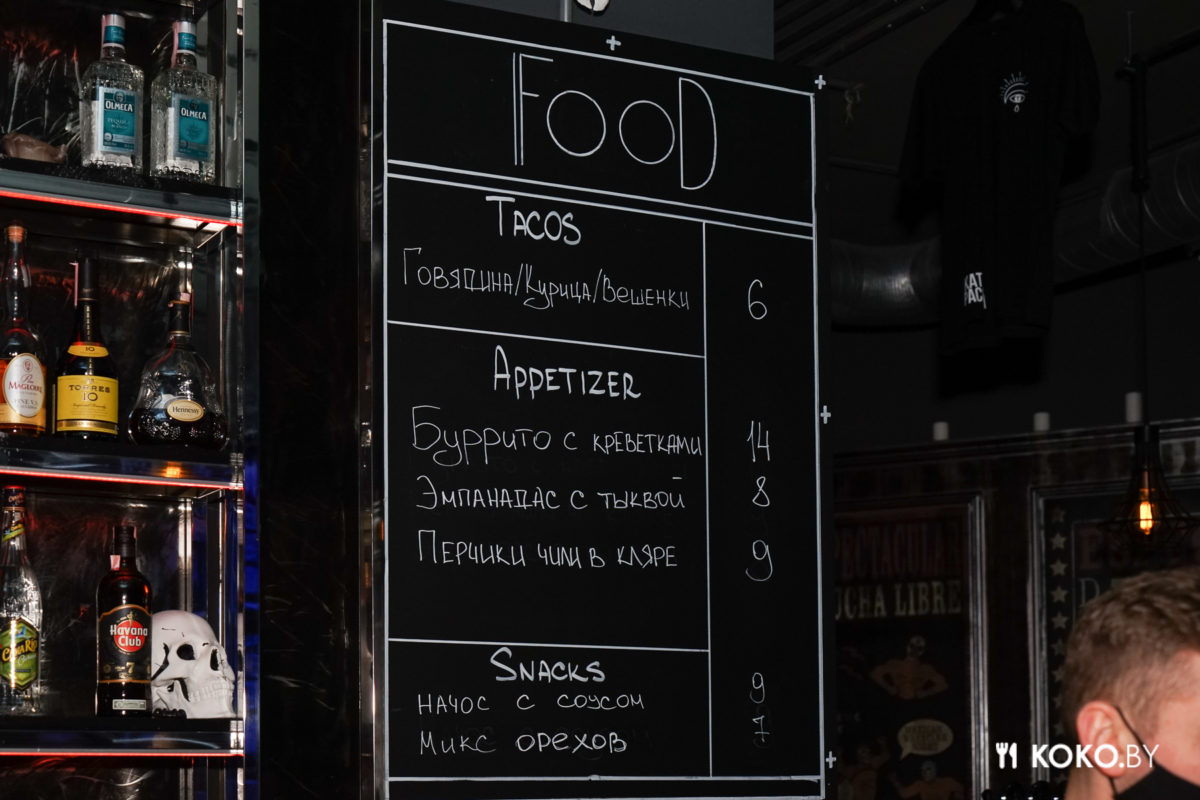 FOOD
TACOS
Говядина/Курица/Вешенки 6
APPETIZER
Буррито с креветками 14
Эмпанадас с тыквой 8
Перчики чили в кляре 9
SNACKS
начос с соусом 9
Микс орехов 7
OLMECA
OLMECA
MAGLOIRE
TORRES
10
Hennessy
Havana
Club
7
LIBRE
KOKO.BY